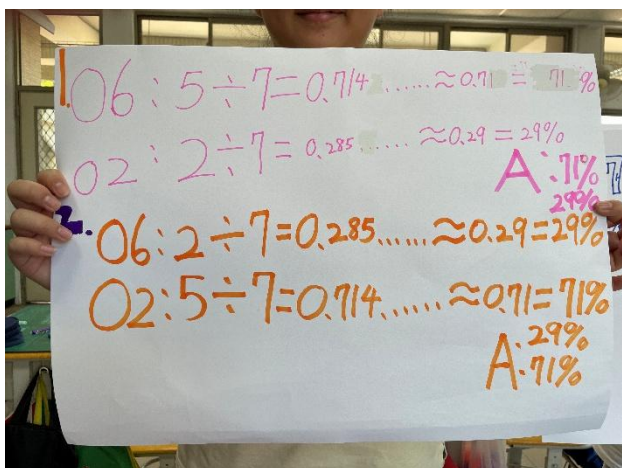 1.
06:5÷7=0.714......≈0.71=71%
02:2÷7=0.285......≈0.29=29%
A:71%
29%
2.
06:2÷7=0.285......≈0.29=29%
02:5÷7=0.714......≈0.71=71%
A:29%
71%